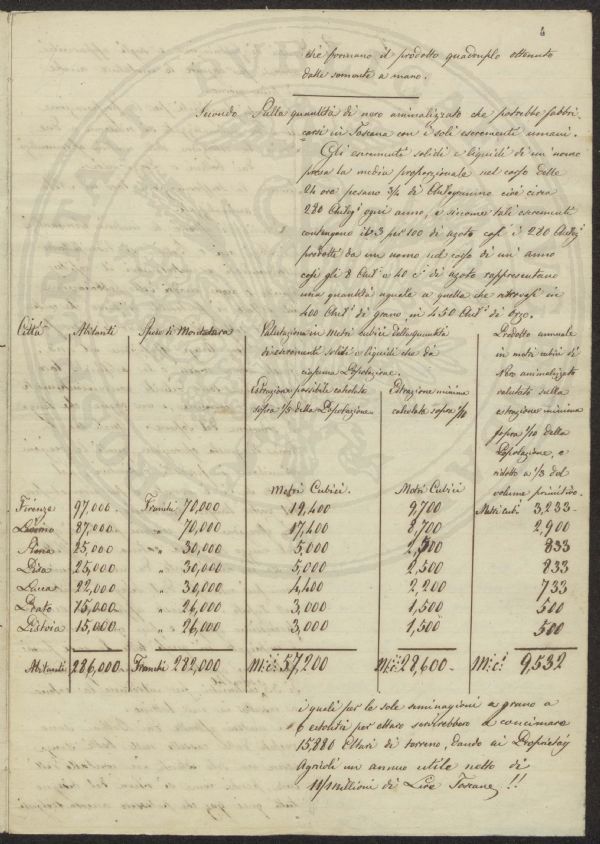 6
che formano il prodotto quadruplo ottenuto
dalle semente a mano.
Secondo Sulla quantità di nero animalizzato che potrebbe fabbri-
carsi in Toscana con i soli escrementi umani.
Gli escrementi solidi e liquidi di un uomo
presa la media proporzionale nel corso delle
24 ore pesano 3/4 di Chilogrammo cioè circa
280 Chilogi ogni anno, e siccome tali escrementi
contengono il 3 per 100 di azoto così i 280 Chilogi
prodotti da un uomo nel corso di un anno
così gli 8 Chili e 40 ci di azoto rappresentano
una quantità uguale a quella che ritrovasi in
400 Chili di grano, in 450 Chili di Orzo.
Città Abitanti Spese di Montatura Valutazione in Metri Cubici della quantità Prodotto annuale
di escrementi solidi e liquidi che dà in metri cubici di
ciascuna Popolazione. Nero animalizzato
Estrazione possibile calcolata Estrazione minima valutato sulla
sopra 1/5 della Popolazione. calcolata sopra 1/10 estrazione minima
sopra 1/10 della
Popolazione, e
ridotto a 1/3 del
Metri Cubici. Metri Cubici volume primitivo.
Firenze 97,000 Franchi 70,000 19,400 9,700 Metri Cubi 3,233
Livorno 87,000 " 70,000 17,400 8,700 2,900
Siena 25,000 " 30,000 5,000 2,500 833
Pisa 25,000 " 30,000 5,000 2,500 833
Lucca 22,000 " 30,000 4,400 2,200 733
Prato 15,000 " 26,000 3,000 1,500 500
Pistoia 15,000 " 26,000 3,000 1,500 500
Abitanti 286,000 Franchi 282,000 M.i C.i 57,200 M.i C.i 28,600 M.i C.i 9,532
i quali per le sole seminagioni a grano a
6 ettolitri per ettaro servirebbero a concimare
15,880 Ettari di terreno, dando ai Proprietarj
Agricoli un annuo utile netto di
Millioni di Lire Toscane !!